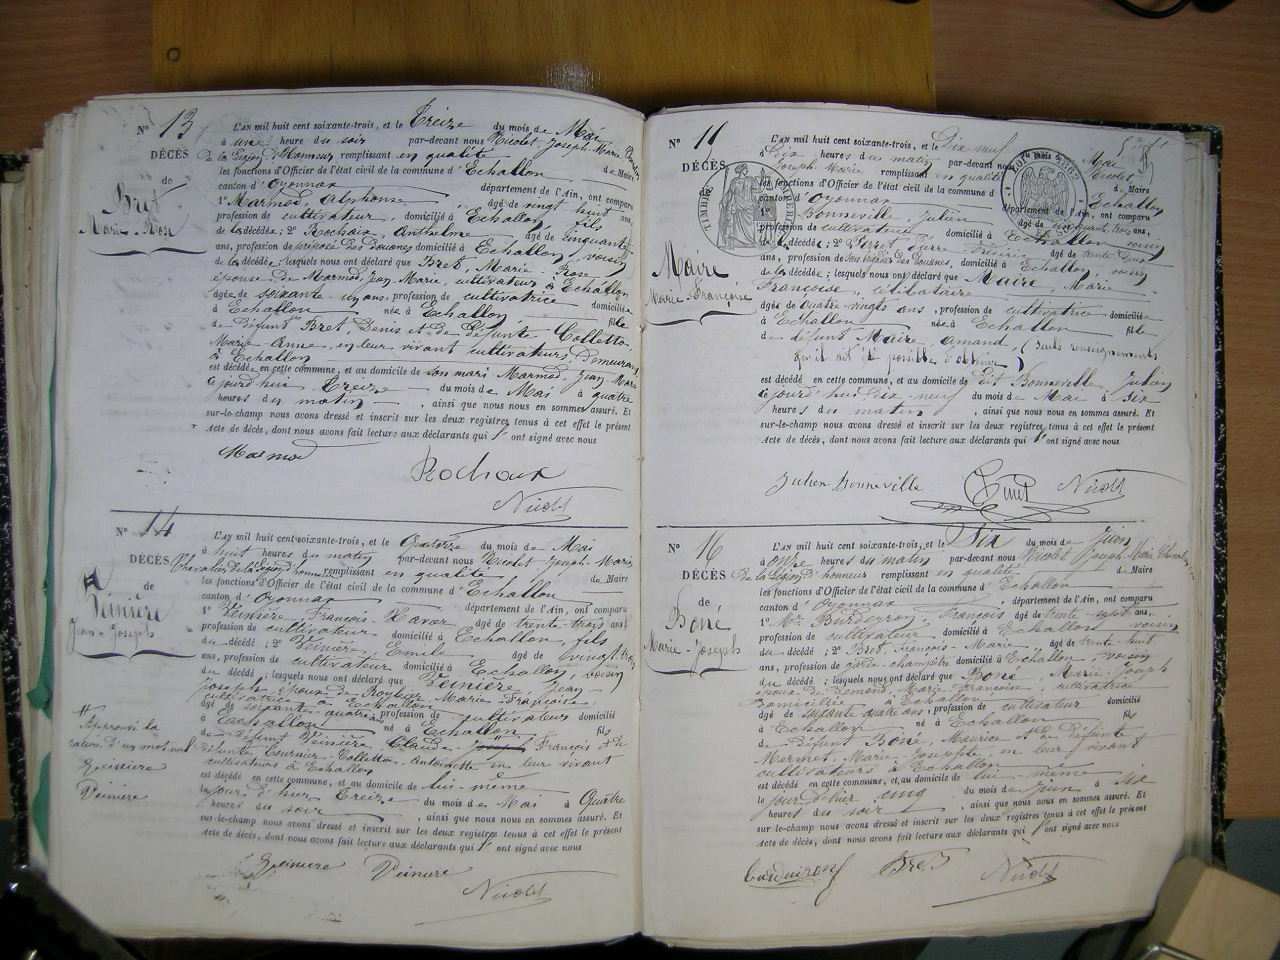 N° 13
DÉCÈS
de
Bret
Marie-Rose
L'AN mil huit cent soixante-trois, et le Treize du mois de Mai
à une heure du soir par-devant nous Nicolet, Joseph-Marie, Chevalier
De la Légion d'Honneur remplissant en qualité de Maire
les fonctions d'Officier de l'état civil de la commune d'Echallon
canton d'Oyonnax département de l'Ain, ont comparu
1° Marmod, Alphonse âgé de vingt huit ans,
profession de cultivateur, domicilié à Echallon, fils
de la décédée; 2° Rochaix, Anthelme âgé de cinquante
ans, profession de préposé Des Douanes domicilié à Echallon, voisin
de la décédée; lesquels nous ont déclaré que Bret, Marie-Rose
épouse de Marmod, Jean Marie, cultivateur à Echallon
âgée de soixante-un ans, profession de cultivatrice domiciliée
à Echallon née à Echallon, fille
de défunt Bret, Denis et de défunte Colletta,
Marie Anne, en leur vivant cultivateurs, Demeurant
à Echallon
est décédée en cette commune, et au domicile de son mari Marmod, Jean Marie
Cejourd'hui Treize du mois de Mai à quatre
heures du matin, ainsi que nous nous en sommes assuré. Et
sur-le-champ nous avons dressé et inscrit sur les deux registres tenus à cet effet le présent
acte de décès, dont nous avons fait lecture aux déclarants qui l'ont signé avec nous
Marmod
Rochaix
Nicolet
N° 14
DÉCÈS
de
Veinière
Jean-Joseph
L'AN mil huit cent soixante-trois, et le Quatorze du mois de Mai
à huit heures du matin par-devant nous Nicolet Joseph-Marie
Chevalier De la Légion d'honneur remplissant en qualité de Maire
les fonctions d'Officier de l'état civil de la commune d'Echallon
canton d'Oyonnax département de l'Ain, ont comparu
1° Veinière, François-Xavier âgé de trente-trois ans,
profession de cultivateur domicilié à Echallon, fils
du décédé; 2° Veinière, Emile âgé de vingt-trois
ans, profession de cultivateur domicilié à Echallon, voisin
du décédé; lesquels nous ont déclaré que Veinière, Jean-
Joseph, époux de Marie-Françoise,
cultivatrice à Echallon
âgé de soixante-quatre profession de cultivateur domicilié
à Echallon né à Echallon fils
de défunt Veinière, Claude-Joseph François et de
défunte Antoinette en leur vivant
cultivateurs à Echallon
est décédé en cette commune, et au domicile de lui-même
le jour d'hier Treize du mois de Mai à Quatre
heures du soir, ainsi que nous nous en sommes assuré. Et
sur-le-champ nous avons dressé et inscrit sur les deux registres tenus à cet effet le présent
acte de décès, dont nous avons fait lecture aux déclarants qui l'ont signé avec nous
Approuvé la
rature d'un mot nul
Veinière
Veinière
Veinière Veinière
Nicolet
N° 15
DÉCÈS
de
Maire
Marie-Françoise
TIMBRE IMPÉRIAL
L'AN mil huit cent soixante-trois, et le Dix neuf du mois de Mai
à Dix heures du matin par-devant nous Nicolet
Joseph-Marie remplissant en qualité de Maire
les fonctions d'Officier de l'état civil de la commune d'Echallon
canton d'Oyonnax département de l'Ain, ont comparu
1° Bonneville, Julien âgé de ans,
profession de cultivateur domicilié à Echallon, voisin
de la décédée; 2° âgé de trente
ans, profession de des Douanes, domicilié à Echallon, voisin
de la décédée; lesquels nous ont déclaré que Maire, Marie-
Françoise, célibataire
âgée de quatre-vingts ans, profession de cultivatrice domiciliée
à Echallon née à Echallon fille
de défunt Maire, Amand, (seuls renseignements
qu'il ait été possible d'obtenir)
est décédée en cette commune, et au domicile de dit Bonneville, Julien
Cejourd'hui Dix-neuf du mois de Mai à Six
heures du matin, ainsi que nous nous en sommes assuré. Et
sur-le-champ nous avons dressé et inscrit sur les deux registres tenus à cet effet le présent
acte de décès, dont nous avons fait lecture aux déclarants qui l'ont signé avec nous
Julien Bonneville
Nicolet
N° 16
DÉCÈS
de
Boné
Marie-Joseph
L'AN mil huit cent soixante-trois, et le Six du mois de Juin
à onze heures du matin par-devant nous Nicolet Joseph Marie, Chevalier
De la Légion d'honneur remplissant en qualité de Maire
les fonctions d'Officier de l'état civil de la commune d'Echallon
canton d'Oyonnax, département de l'Ain, ont comparu
1° François âgé de trente-sept ans,
profession de cultivateur domicilié à Echallon, voisin
du décédé; 2° Bret, François-Marie, âgé de trente huit
ans, profession de garde-champêtre domicilié à Echallon, voisin
du décédé; lesquels nous ont déclaré que Boné Marie-Joseph
époux de Marie-Françoise, cultivatrice
Domiciliée à Echallon
âgé de soixante quatre ans, profession de cultivateur domicilié
à Echallon né à Echallon fils
de défunt Boné, Maurice et de Défunte
Mermet, Marie-Josephte, en leur vivant
cultivateurs à Echallon
est décédé en cette commune, et au domicile de lui-même
le jour d'hier cinq du mois de juin à six
heures du soir, ainsi que nous nous en sommes assuré. Et
sur-le-champ nous avons dressé et inscrit sur les deux registres tenus à cet effet le présent
acte de décès, dont nous avons fait lecture aux déclarants qui l'ont signé avec nous
Bret
Nicolet